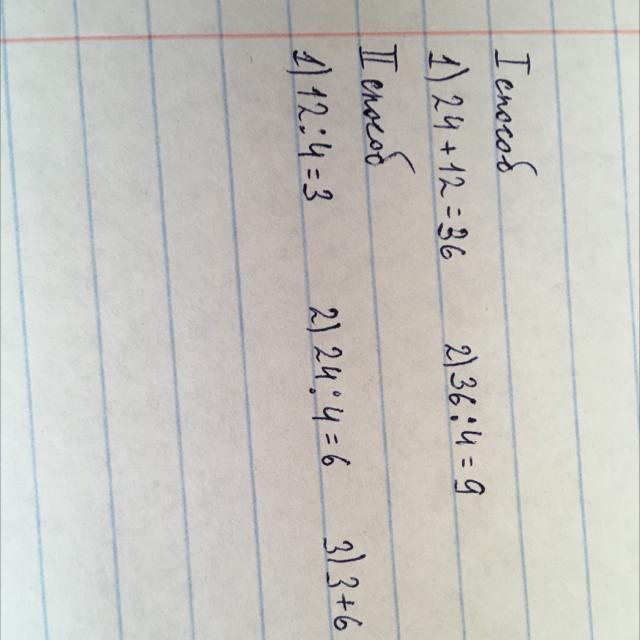 I способ
1) 24 + 12 = 36 2) 36 : 4 = 9
II способ
1) 12 : 4 = 3 2) 24 : 4 = 6 3) 3 + 6